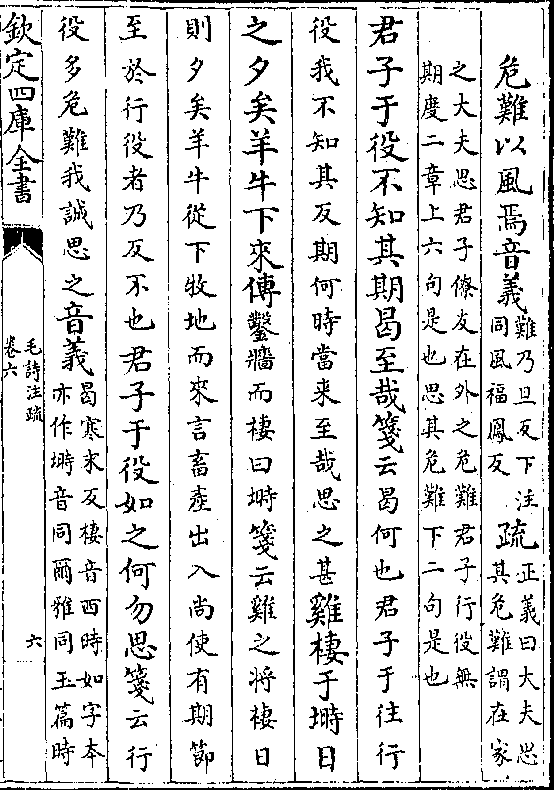 危難以風焉音義難乃旦反下注
同風福鳳反疏正義曰大夫思
其危難謂在家
之大夫思君子僚友在外之危難君子行役無
期度二章上六句是也思其危難下二句是也
君子于役不知其期曷至哉箋云曷何也君子于往行
役我不知其反期何時當来至哉思之甚雞棲于塒日
之夕矣羊牛下來傳鑿牆而棲曰塒箋云雞之將棲日
則夕矣羊牛從下牧地而來言畜產出入尚使有期節
至於行役者乃反不也君子于役如之何勿思箋云行
役多危難我誠思之音義曷寒末反棲音西時如字本
亦作塒音同爾雅同玉篇時
欽定四庫全書
毛詩注疏
卷六
六